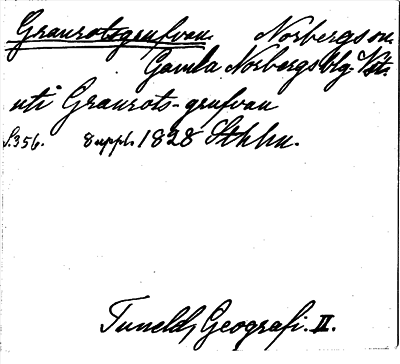 Granrotsgrufvan. Norbergs sn.
Gamla Norbergs blg. Vstm.
uti Granrots-grufvan
S. 356. 8 uppl. 1828 Sthlm.
Tunelds, Geografi. II.